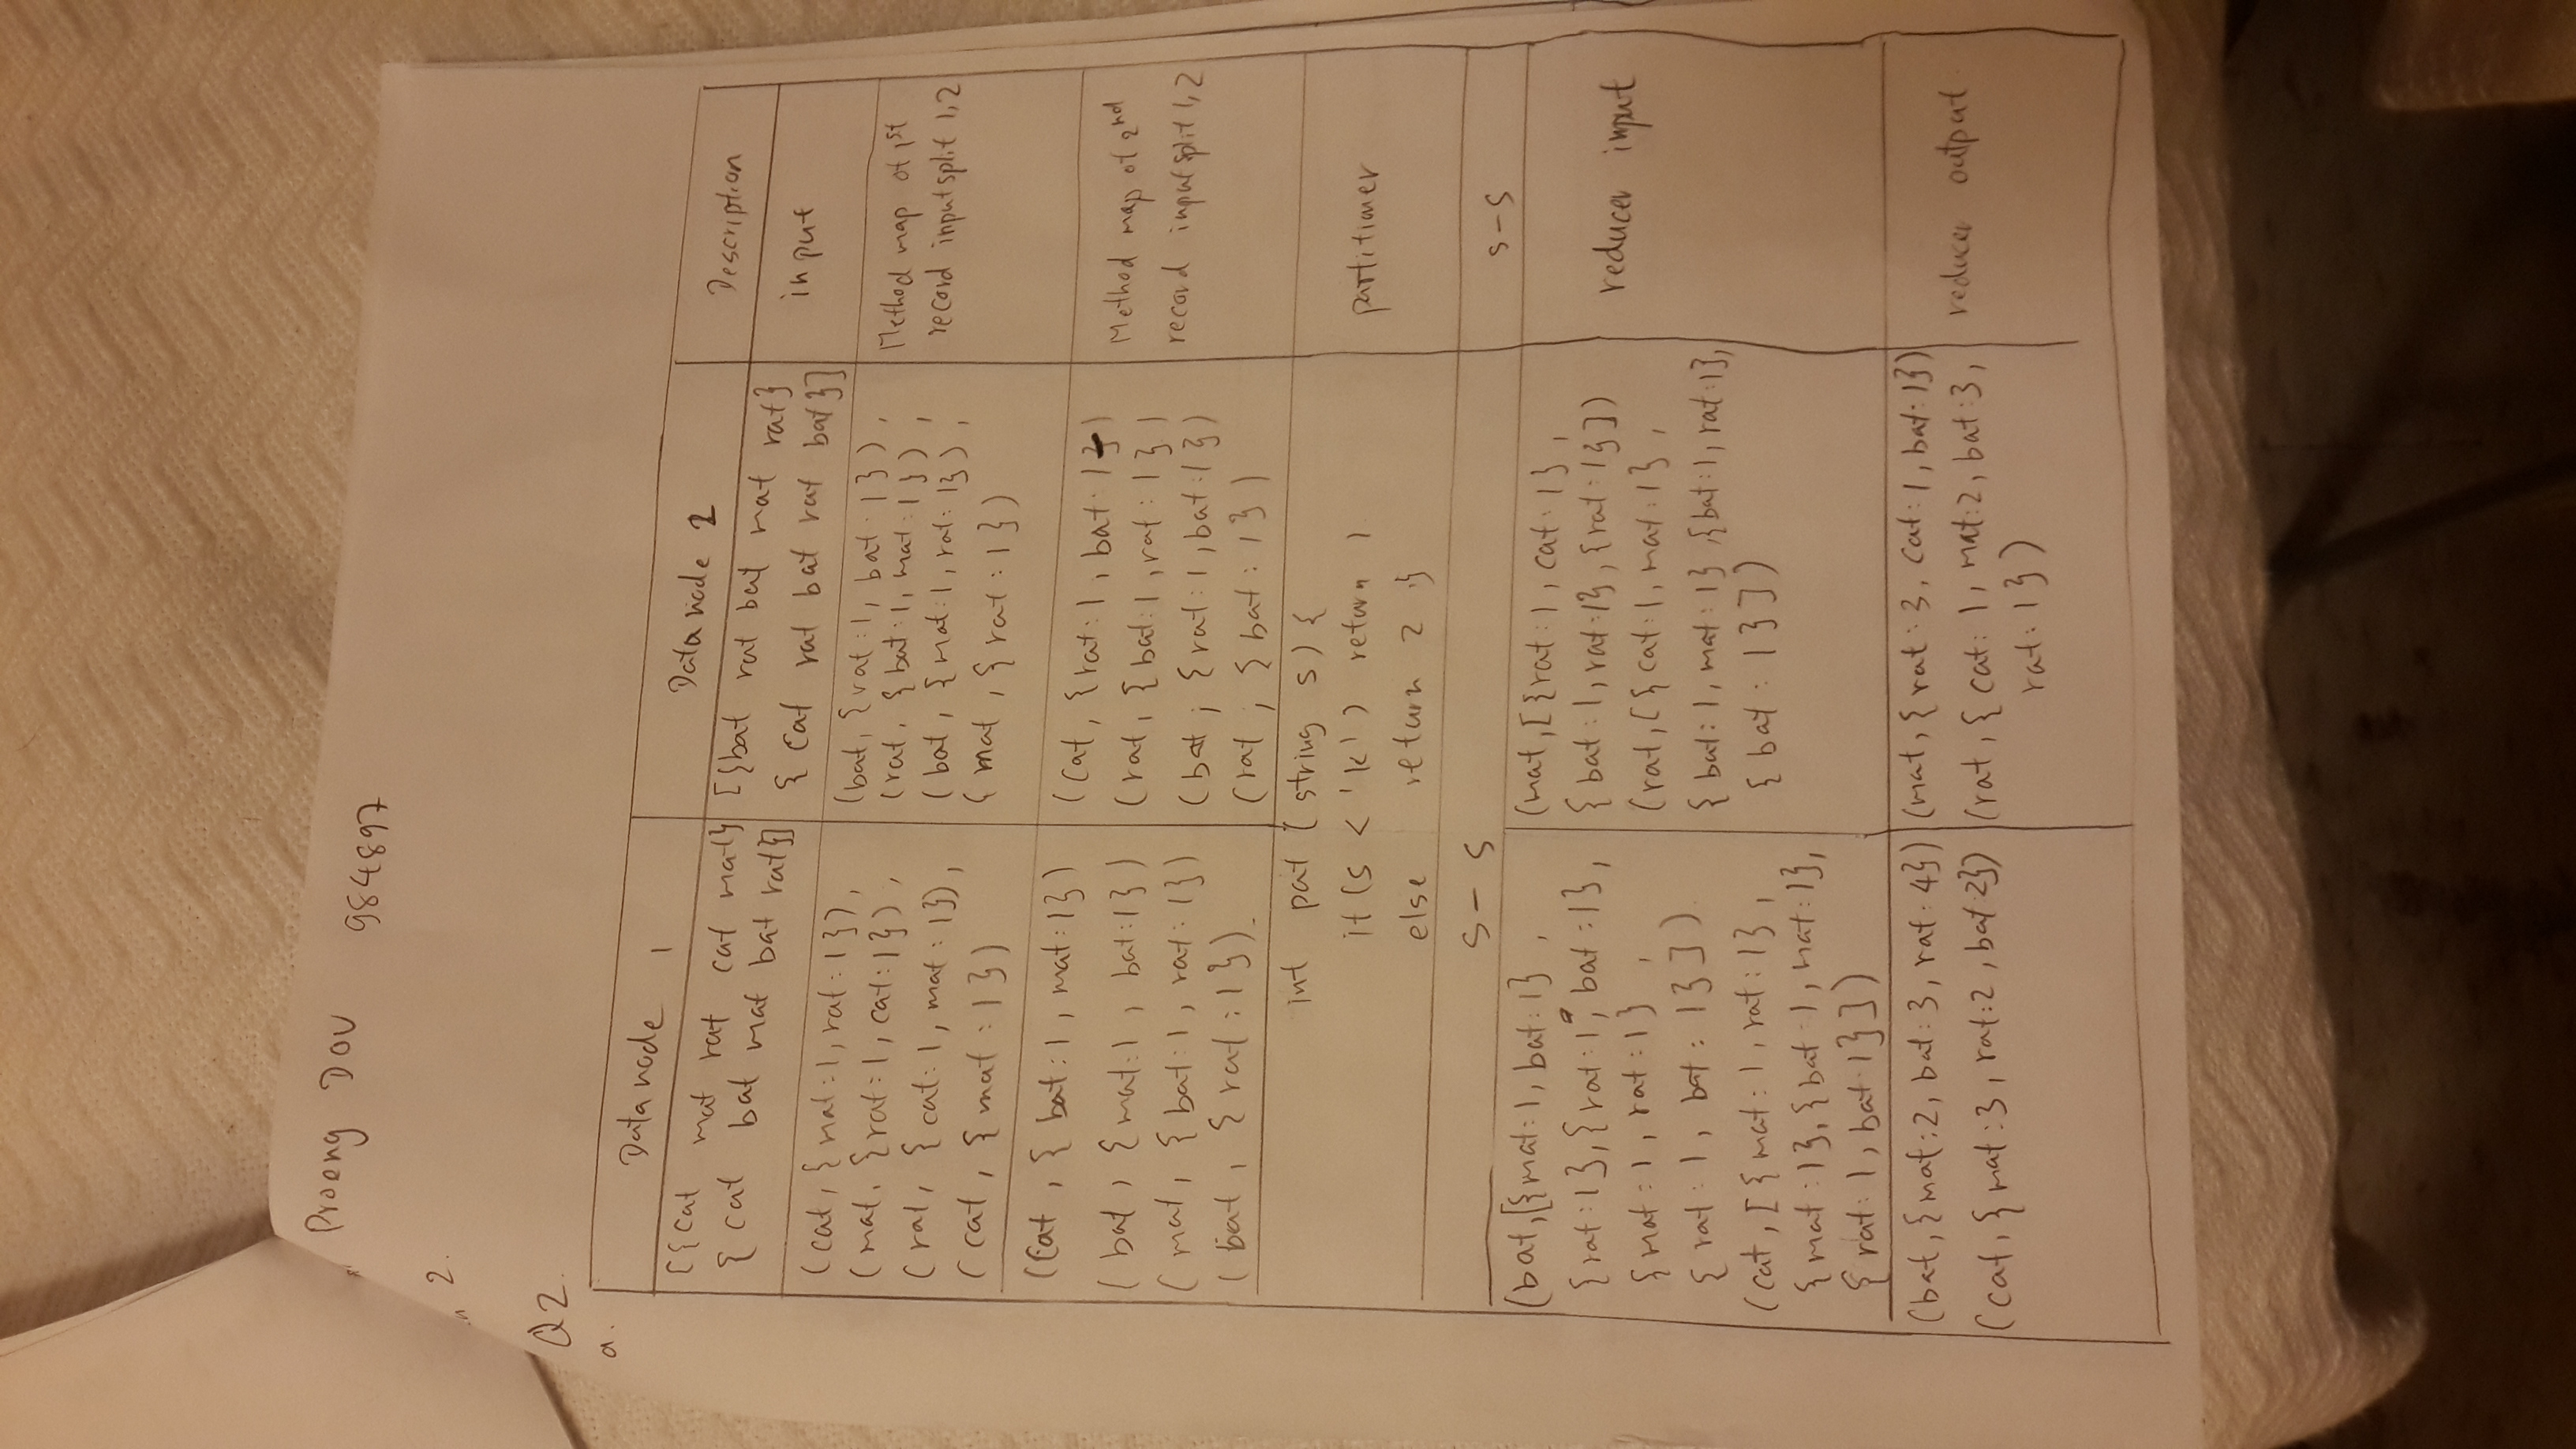 Proeng DOV 984897
2.
Q2.
a.
Datanode 1
Datanode 2
Description
[{cat mat rat cat mat}
{ cat bat mat bat rat}]
[{bat rat bat mat rat}
{ cat rat bat rat bat}]
input
(cat, {mat:1, rat:1}),
(mat, {rat:1, cat:1}),
(rat, {cat:1, mat:1}),
(cat, {mat:1})
(bat, {rat:1, bat:1}),
(rat, {bat:1, mat:1}),
(bat, {mat:1, rat:1}),
(mat, {rat:1})
Method map of 1st
record inputsplit 1,2
(Cat, {bat:1, mat:1})
(bat, {mat:1, bat:1})
(mat, {bat:1, rat:1})
(bat, {rat:1}).
(Cat, {rat:1, bat:1})
(rat, {bat:1, rat:1})
(bat, {rat:1, bat:1})
(rat, {bat:1})
Method map of 2nd
record input split 1,2
int pat (string s) {
if (s < 'k') return 1
else return 2 }
partitioner
S-S
S-S
(bat, [{mat:1, bat:1},
{rat:1}, {rat:1, bat:1},
{mat:1, rat:1},
{rat:1, bat:1}]).
(cat, [{mat:1, rat:1},
{mat:1}, {bat:1, mat:1},
{rat:1, bat:1}])
(mat, [{rat:1, cat:1},
{bat:1, rat:1}, {rat:1}])
(rat, [{cat:1, mat:1},
{bat:1, mat:1}, {bat:1, rat:1},
{bat:1}])
reducer input
(bat, {mat:2, bat:3, rat:4})
(cat, {mat:3, rat:2, bat:2})
(mat, {rat:3, cat:1, bat:1})
(rat, {cat:1, mat:2, bat:3,
rat:1})
reducer output